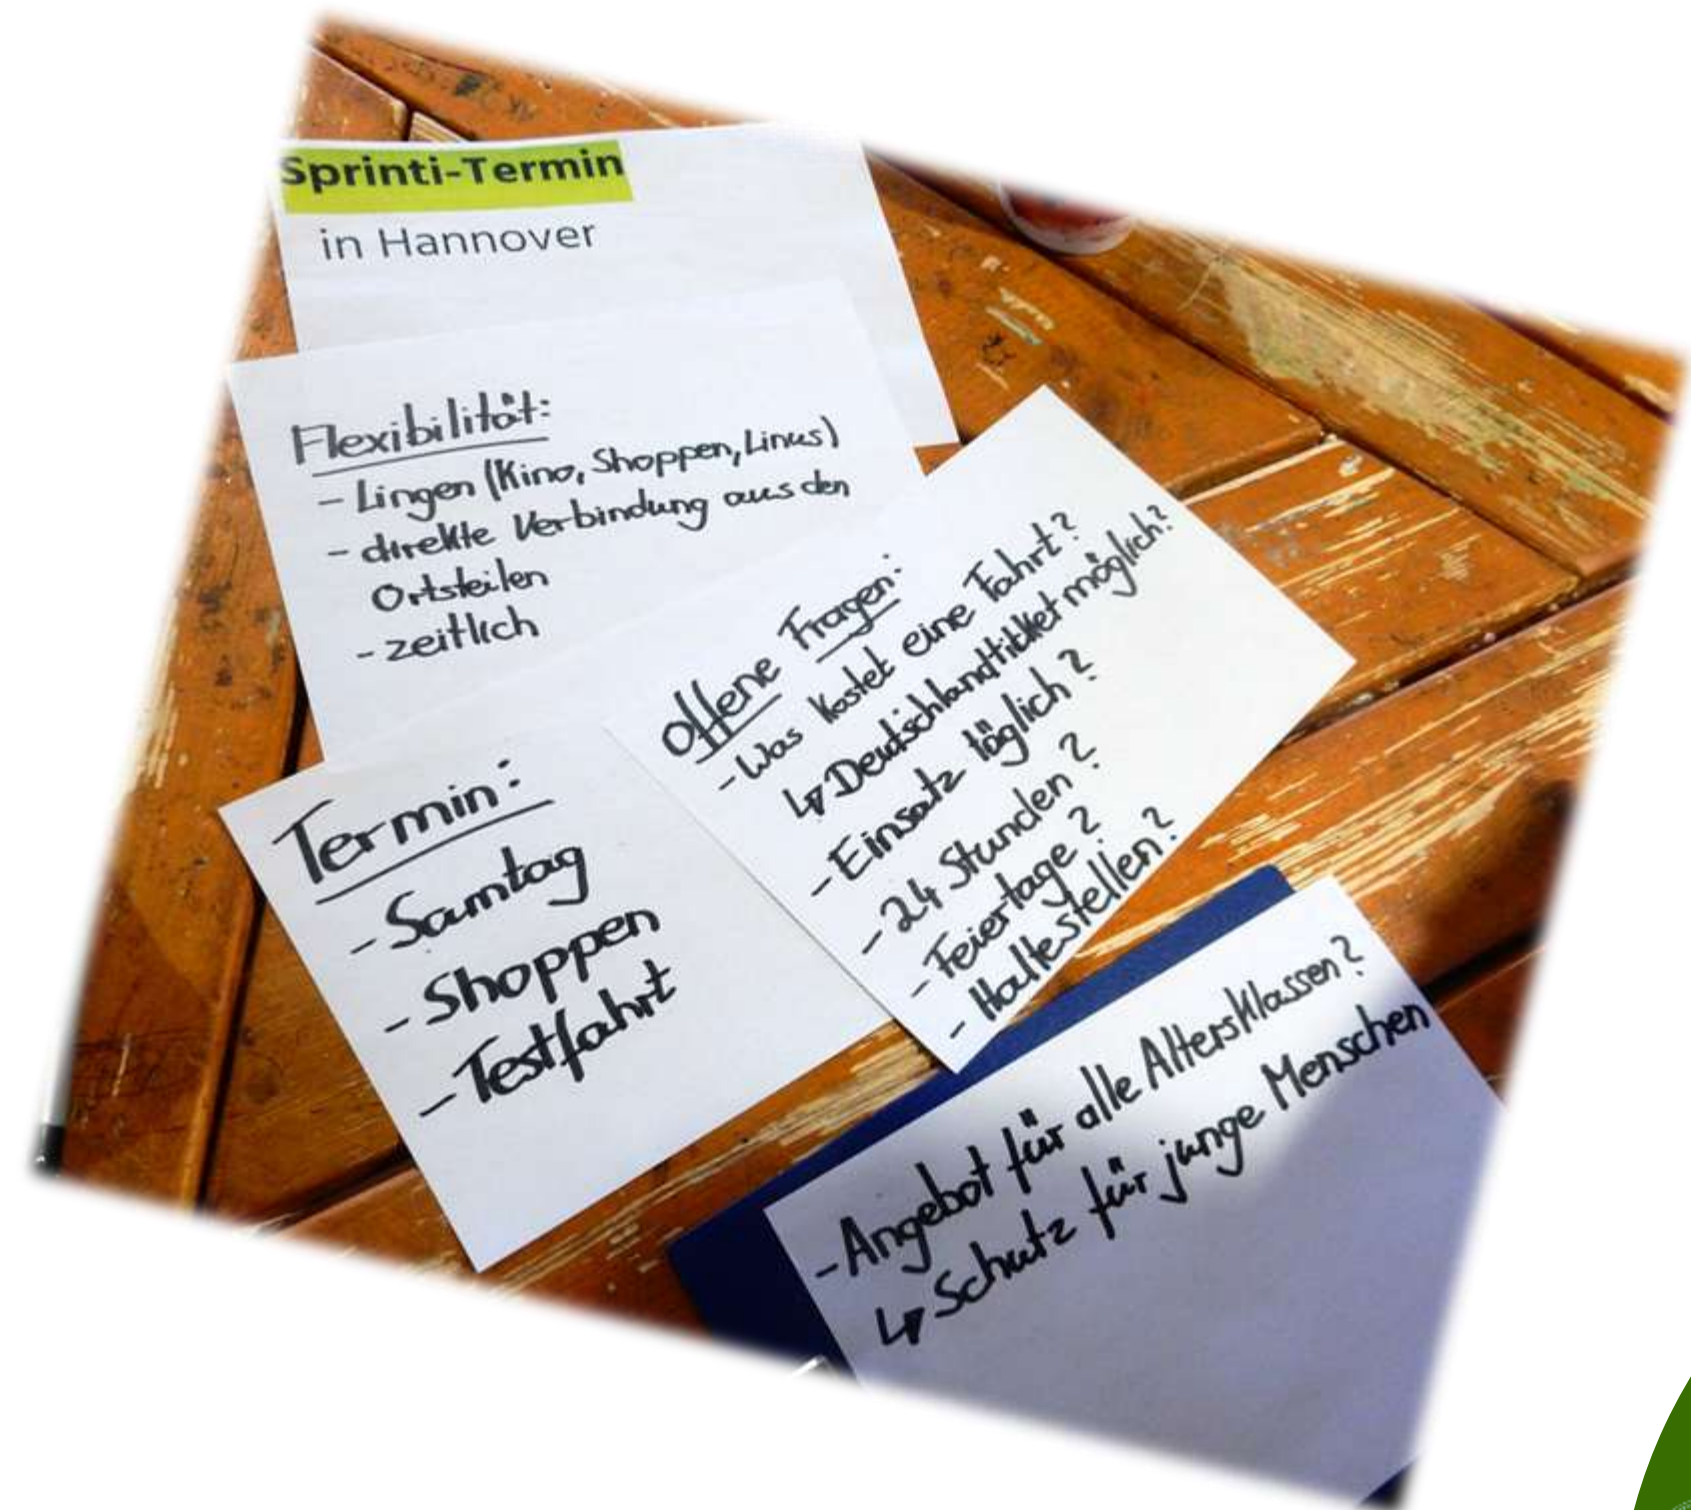 Sprinti-Termin
in Hannover
Flexibilität:
- Lingen (Kino, Shoppen, Linus)
- direkte Verbindung aus den
Ortsteilen
- zeitlich
Offene Fragen:
- Was kostet eine Fahrt?
↳ Deutschlandticket möglich?
- Einsatz täglich?
- 24 Stunden?
- Feiertage?
- Haltestellen?
Termin:
- Samtag
- Shoppen
- Testfahrt
- Angebot für alle Altersklassen?
↳ Schutz für junge Menschen